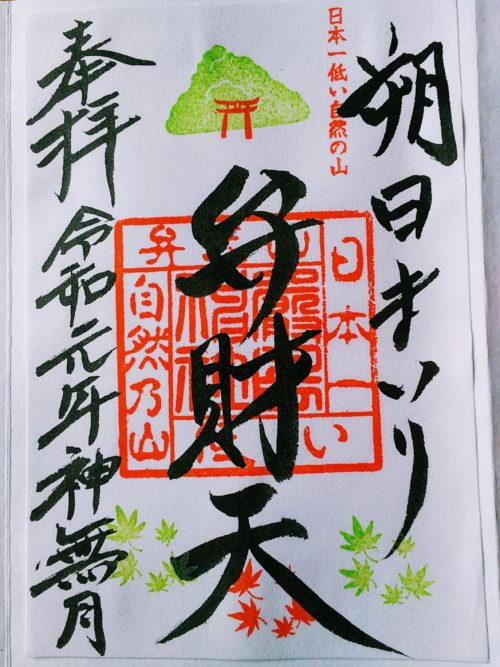 日本一低い自然の山
朔日まいり
弁財天
奉拝 令和元年神無月
日本一
い
自然乃山
弁